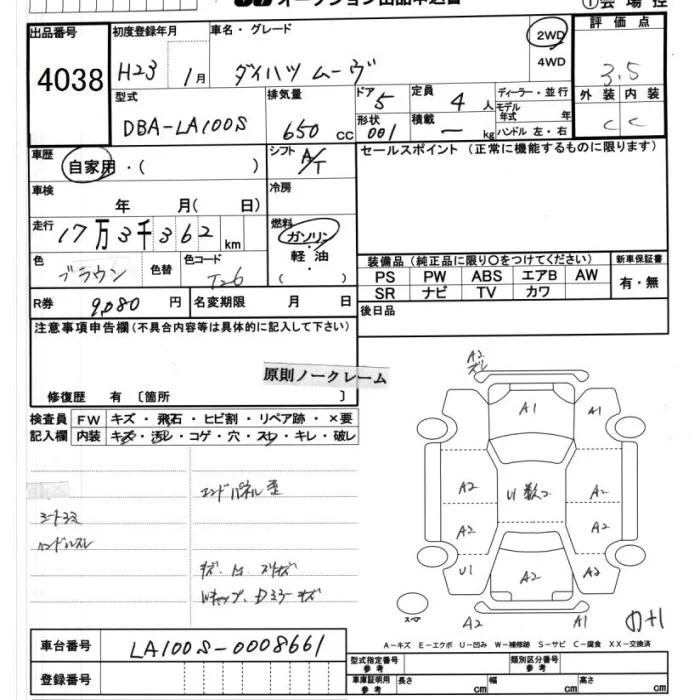 オークション出品申込書
①会場控
出品番号
4038
初度登録年月
H23 1月
車名・グレード
ダイハツ ムーヴ
2WD
4WD
評価点
3.5
外装 内装
C C
型式
DBA-LA100S
排気量
650 CC
ドア
5
形状
001
定員
4 人
積載
ー kg
ディーラー・並行
モデル年式 年
ハンドル 左・右
車歴
自家用・( )
シフト
A/T
セールスポイント (正常に機能するものに限ります)
車検
年 月( 日)
冷房
走行
17万3千362 km
燃料
ガソリン
軽・油
( ・ )
色
ブラウン
色替
色コード
T26
装備品 (純正品に限り〇をつけてください)
PS PW ABS エアB AW
SR ナビ TV カワ
新車保証書
有・無
R券
9,080 円
名変期限 月 日
後日品
注意事項申告欄(不具合内容等は具体的に記入して下さい)
原則ノークレーム
修復歴 有 〔箇所 〕
検査員記入欄
FW キズ・飛石・ヒビ割・リペア跡・×要
内装 キズ・汚レ・コゲ・穴・スレ・キレ・破レ
エンドパネル歪
シートコミ
ハンドルスレ
A2
A1
A1
A2
U1
A2
A2
A2
A2
U1
A2
A2
スペア
A2
A1
A-キズ E-エクボ U-凹み W-補修跡 S-サビ C-腐食 XX-交換済
車台番号
LA100S-0008661
登録番号
型式指定番号
参考
類別区分番号
参考
車庫証明用
参考
長さ cm 幅 cm 高さ cm